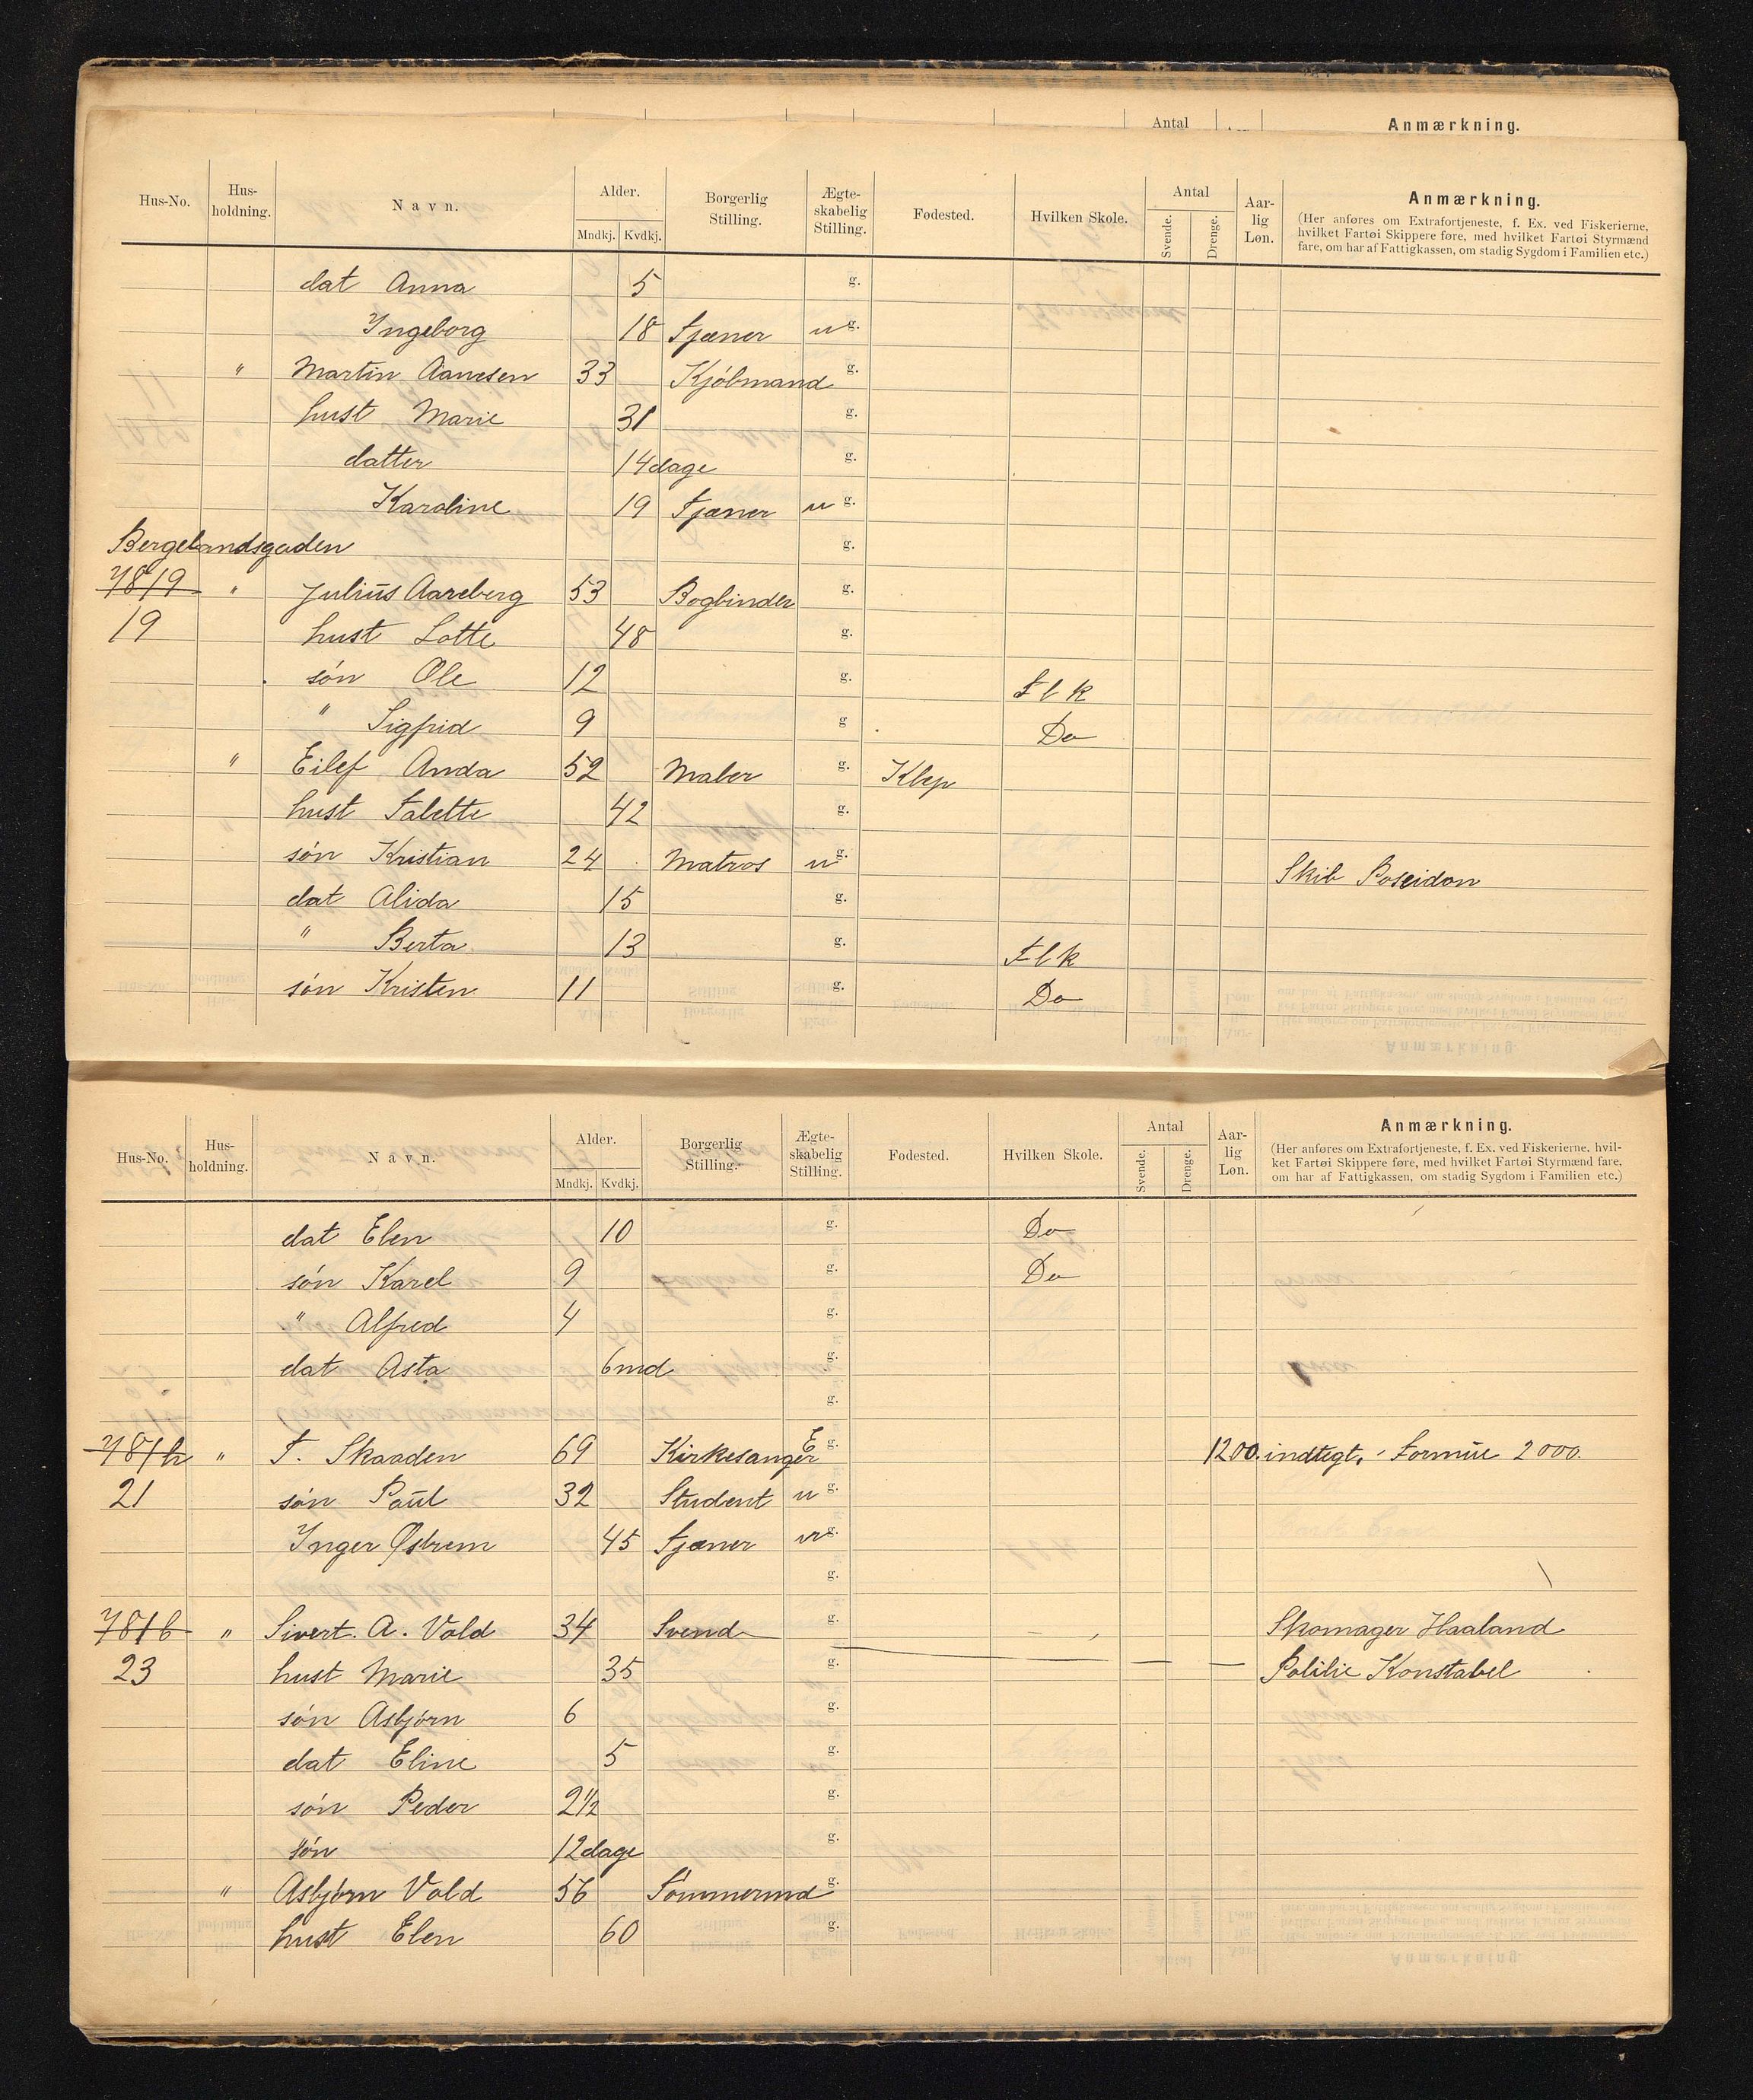 Antal Anmærkning.
Hus-No. Hus-holdning. Navn. Alder. Mndkj. Kvdkj. Borgerlig Stilling. Ægte-skabelig Stilling. Fødested. Hvilken Skole. Antal Svende. Drenge. Aar-lig Løn. Anmærkning.
(Her anføres om Extrafortjeneste, f. Ex. ved Fiskerierne,
hvilket Fartøi Skippere føre, med hvilket Fartøi Styrmænd
fare, om har af Fattigkassen, om stadig Sygdom i Familien etc.)
dat Anna 5 g.
Ingeborg 18 Tjæner u g.
" Martin Aanesen 33 Kjöbmand g.
hust Marie 31 g.
datter 14 dage g.
Karoline 19 Tjæner u g.
Bergelandsgaden g.
78/9 " Julius Aareberg 53 Bogbinder g.
19 hust Lotte 48 g.
søn Ole 12 g. Flk
" Sigfrid 9 g Do
" Eilef Anda 52 Maler g. Klep
hust Talette 42 g.
søn Kristian 24 Matros u g. Skib Poseidon
dat Alida 15 g.
" Berta 13 g. Flk
søn Kristen 11 g. Do
Hus-No. Hus-holdning. Navn. Alder. Mndkj. Kvdkj. Borgerlig Stilling. Ægte-skabelig Stilling. Fødested. Hvilken Skole. Antal Svende. Drenge. Aar-lig Løn. Anmærkning.
(Her anføres om Extrafortjeneste, f. Ex. ved Fiskerierne, hvil-
ket Fartøi Skippere føre, med hvilket Fartøi Styrmænd fare,
om har af Fattigkassen, om stadig Sygdom i Familien etc.)
dat Elen 10 g. Do
søn Karel 9 g. Do
" Alfred 4 g.
dat Asta 6 md g.
g.
" T. Skaaden 69 Kirkesanger E g. 1200. indtegt, - Formue 2000.
21 søn Paul 32 Student u g.
Inger Østrem 45 Tjæner g.
g.
78/6 " Sivert. A. Vold 34 Svend g. Skomager Haaland
23 hust Marie 35 g. Politie Konstabel
søn Asbjørn 6 g.
dat Eline 5 g.
søn Peder 2½ g.
søn 12 dage g.
" Asbjørn Vold 56 Tömmermd g.
hust Elen 60 g.